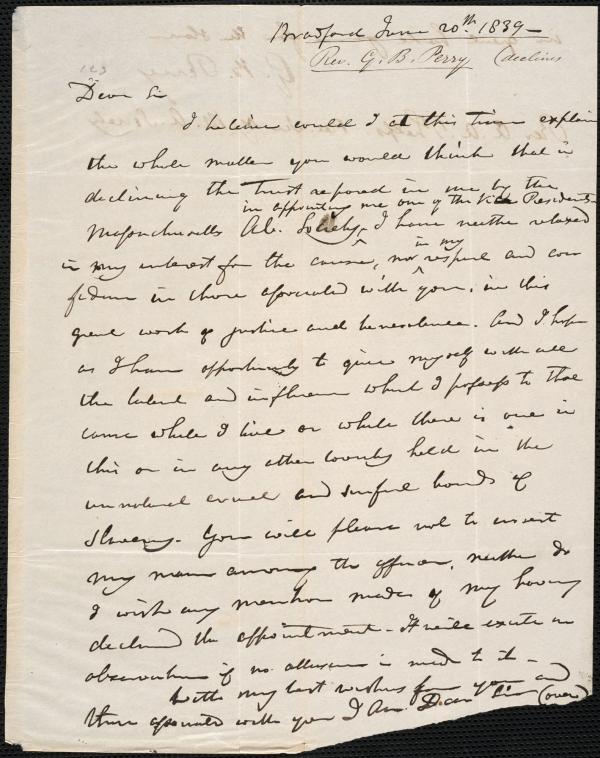 Bradford June 20.th 1839-
Rev. G. B. Perry (declines
Dear Sir
I believe could I at this time explain
the whole matter you would think that in
declining the trust reposed in me by the
in appointing me one of the Vice Presidents
Massachusetts A.S. Society, I have neither relaxed
in my interest for the cause, nor in my respect and con
fidence in those associated with you, in this
great work of justice and benevolence. And I hope
as I have opportunity to give myself with all
the talent and influence which I possess to that
cause while I live or while there is one in
this or in any other Country held in the
unnatural cruel and sinful bonds of
Slavery. You will please not to insert
my name among the officers, neither do
I wish any mention made of my having
declined the appointment - It will excite no
observation if no allusion is made to it -
With my best wishes for you and
those associated with you I am Dear Sir (over)